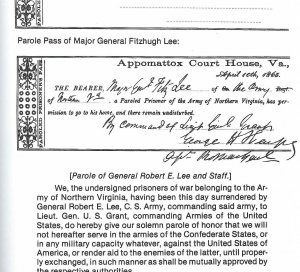 Parole Pass of Major General Fitzhugh Lee:
Appomattox Court House, Va.,
April 10th, 1865.
THE BEARER, Major Genl Fitz Lee of
of Northern Va, a Paroled Prisoner of the Army of Northern Virginia, has per-
mission to go to his home, and there remain undisturbed.
By command of Lieut Genl Grant
George H Sharpe
[Parole of General Robert E. Lee and Staff.]
We, the undersigned prisoners of war belonging to the Ar-
my of Northern Virginia, having been this day surrendered by
General Robert E. Lee, C. S. Army, commanding said army, to
Lieut. Gen. U. S. Grant, commanding Armies of the United
States, do hereby give our solemn parole of honor that we will
not hereafter serve in the armies of the Confederate States, or
in any military capacity whatever, against the United States of
America, or render aid to the enemies of the latter, until proper-
ly exchanged, in such manner as shall be mutually approved by
the respective authorities